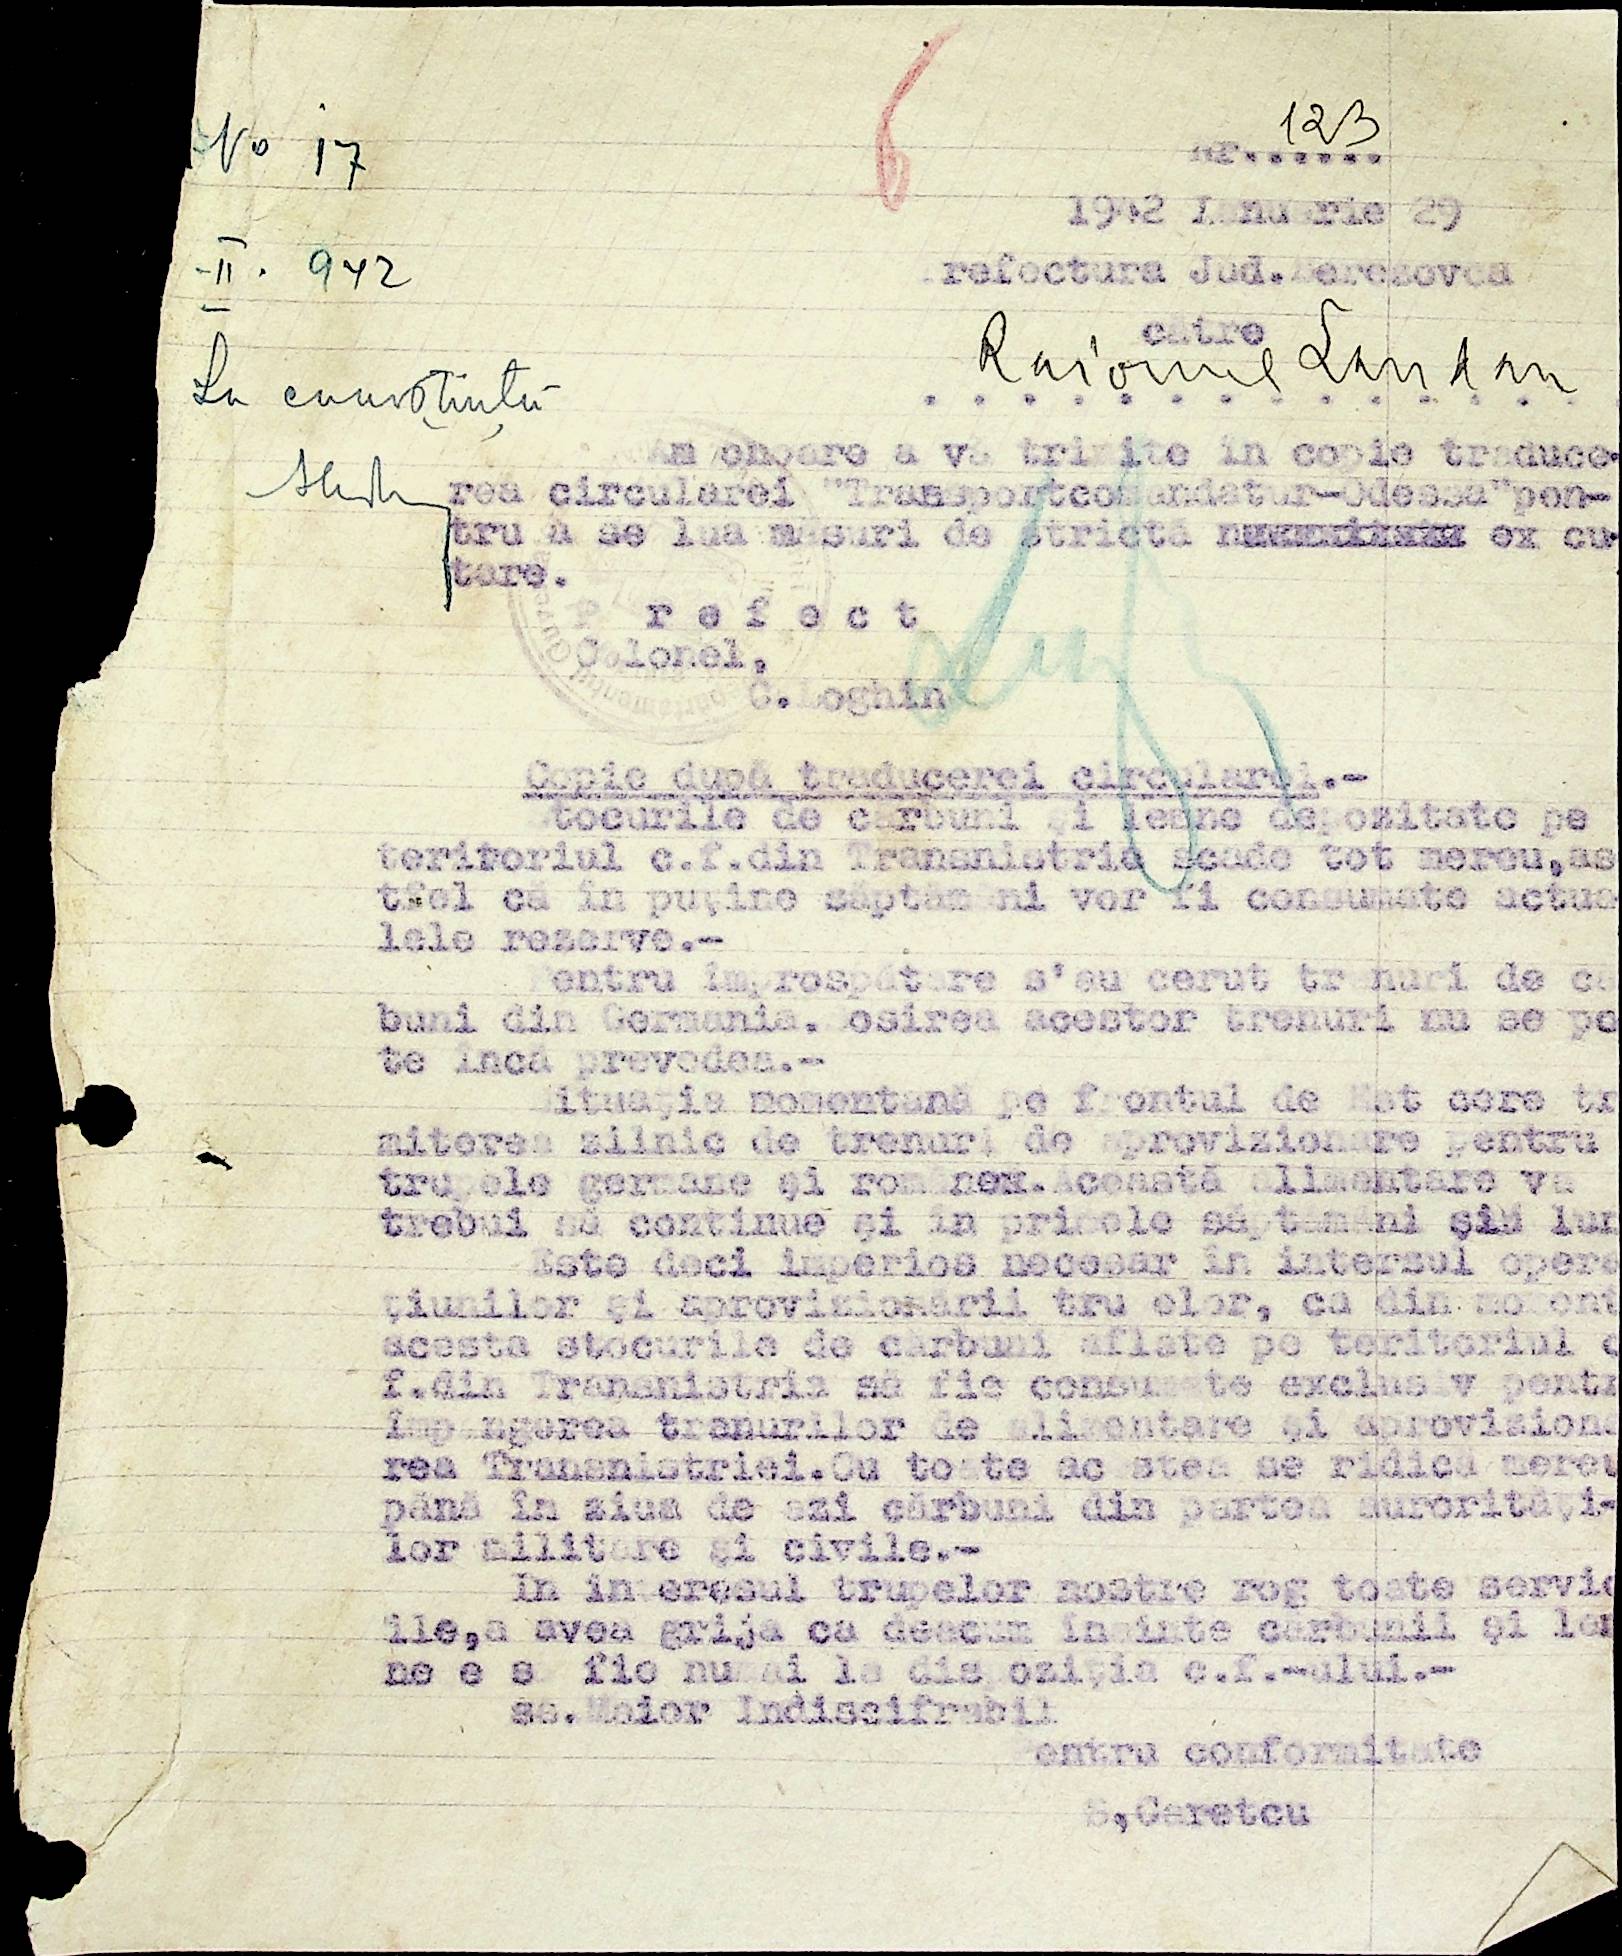 No 17
6
123
Nr.......
1942 Ianuarie 29
II. 942
Prefectura Jud.Berezovca
către
Raionul Landau
La cunoștință
Am onoare a vă trimite în copie traduce-
rea circularei "Transportcomandatur-Odessa"pen-
tru a se lua măsuri de strictă execu
tare.
P r e f e c t
Colonel,
C.Loghin
Copie după traducerei circularei.-
Stocurile de cărbuni și lemne depozitate pe
teritoriul c.f.din Transnistria scade tot mereu,as
tfel că în puține săptămâni vor fi consumate actua
lele rezerve.-
Pentru împrospătare s'au cerut trenuri de că
buni din Germania. Sosirea acestor trenuri nu se po
te încă prevedea.-
Situația momentană pe frontul de Est cere tr
miterea zilnic de trenuri de aprovizionare pentru
trupele germane și romanex.Această alimentare va
trebui să continue și în pricele săptămâni șiû lun
Este deci imperios necesar în intersul opera
țiunilor și aprovizionării trupelor, ca din moment
acesta stocurile de cărbuni aflate pe teritoriul c
f.din Transnistria să fie consumate exclusiv pentr
împingerea trenurilor de alimentare și aproviziona
rea Transnistriei.Cu toate acestea se ridică mereu
până în ziua de azi cărbuni din partea aurorități-
lor militare și civile.-
In interesul trupelor nostre rog toate servic
ile,a avea grija ca deacum înainte carbunii și lem
ne e s fie numai la dispoziția c.f.-ului.-
ss.Maior Indiscifrabil
Pentru conformitate
S,Caretcu